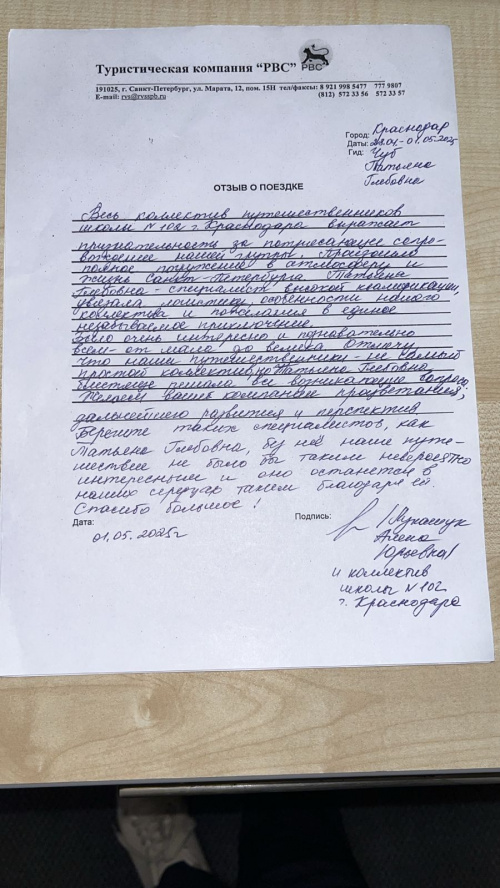 Туристическая компания “РВС”
РВС
191025, г. Санкт-Петербург, ул. Марата, 12, пом. 15Н тел/факсы: 8 921 998 5477 777 9807
E-mail: rvs@rvsspb.ru (812) 572 33 56 572 33 57
Город: Краснодар
Даты: 28.04 - 01.05.2025
Гид: Чуб
Татьяна
Глебовна
ОТЗЫВ О ПОЕЗДКЕ
Весь коллектив путешественников
школы №102 г. Краснодара выражает
признательность за потрясающее сопро-
вождение нашей группы. Произошло
полное погружение в атмосферу и
жизнь Санкт-Петербурга. Татьяна
Глебовна - специалист высокой квалификации,
увязала логистику, особенности нашего
коллектива и пожелания в единое
незабываемое приключение.
Было очень интересно и познавательно
всем - от мала до велика. Отмечу,
что наши путешественники - не самый
простой коллектив, но Татьяна Глебовна
блестяще решала все возникающие вопросы.
Желаем вашей компании процветания,
дальнейшего развития и перспектив
Берегите таких специалистов, как
Татьяна Глебовна, без неё наше путе-
шествие не было бы таким невероятно
интересным и оно останется в
наших сердцах таким благодаря ей.
Спасибо большое!
Дата: Подпись:
01.05.2025г /Лукащук
Алена
Юрьевна/
и коллектив
школы №102
г. Краснодара